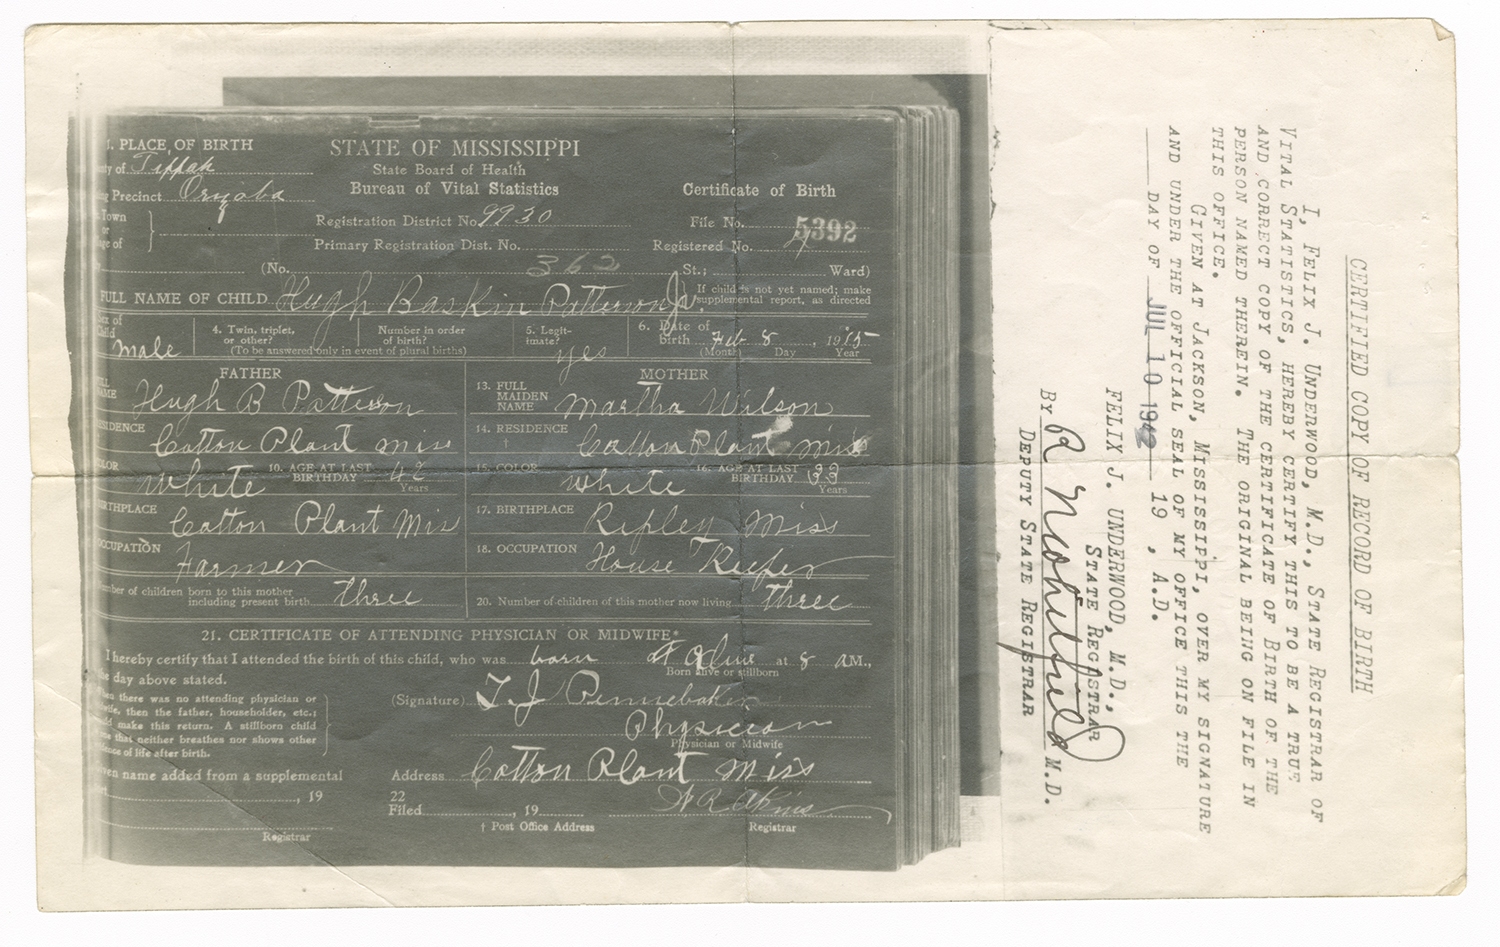 1. PLACE OF BIRTH
ty of Tippah
g Precinct Orizaba
Town
or
age of
STATE OF MISSISSIPPI
State Board of Health
Bureau of Vital Statistics
Certificate of Birth
Registration District No. 9930
File No. 5392
Primary Registration Dist. No.
Registered No. 4
(No. 362 St.; Ward)
FULL NAME OF CHILD Hugh Baskin Patterson Jr.
If child is not yet named; make
supplemental report, as directed
Sex of
Child male
4. Twin, triplet,
or other?
Number in order
of birth?
(To be answered only in event of plural births)
5. Legit-
imate? yes
6. Date of
birth Feb 8, 1915
(Month) Day Year
FATHER
NAME Hugh B Patterson
ESIDENCE Cotton Plant Miss
COLOR White
10. AGE AT LAST
BIRTHDAY 42
Years
RTHPLACE Cotton Plant Mis
OCCUPATION Farmer
mber of children born to this mother
including present birth three
MOTHER
13. FULL
MAIDEN
NAME Martha Wilson
14. RESIDENCE Cotton Plant Miss
†
15. COLOR White
16. AGE AT LAST
BIRTHDAY 33
Years
17. BIRTHPLACE Ripley Miss
18. OCCUPATION House Keeper
20. Number of children of this mother now living three
21. CERTIFICATE OF ATTENDING PHYSICIAN OR MIDWIFE*
I hereby certify that I attended the birth of this child, who was born Alive at 8 AM.,
Born alive or stillborn
e day above stated.
en there was no attending physician or
wife, then the father, householder, etc.;
ld make this return. A stillborn child
one that neither breathes nor shows other
dence of life after birth.
(Signature) T. J. Pennebaker
Physician
Physician or Midwife
ven name added from a supplemental
, 19
Registrar
Address Cotton Plant Miss
22
Filed , 19
† Post Office Address
Registrar
CERTIFIED COPY OF RECORD OF BIRTH
I, FELIX J. UNDERWOOD, M.D., STATE REGISTRAR OF
VITAL STATISTICS, HEREBY CERTIFY THIS TO BE A TRUE
AND CORRECT COPY OF THE CERTIFICATE OF BIRTH OF THE
PERSON NAMED THEREIN. THE ORIGINAL BEING ON FILE IN
THIS OFFICE.
GIVEN AT JACKSON, MISSISSIPPI, OVER MY SIGNATURE
AND UNDER THE OFFICIAL SEAL OF MY OFFICE THIS THE
DAY OF JUL 10 1942 19 , A.D.
FELIX J. UNDERWOOD, M.D.,
STATE REGISTRAR
BY M.D.
DEPUTY STATE REGISTRAR